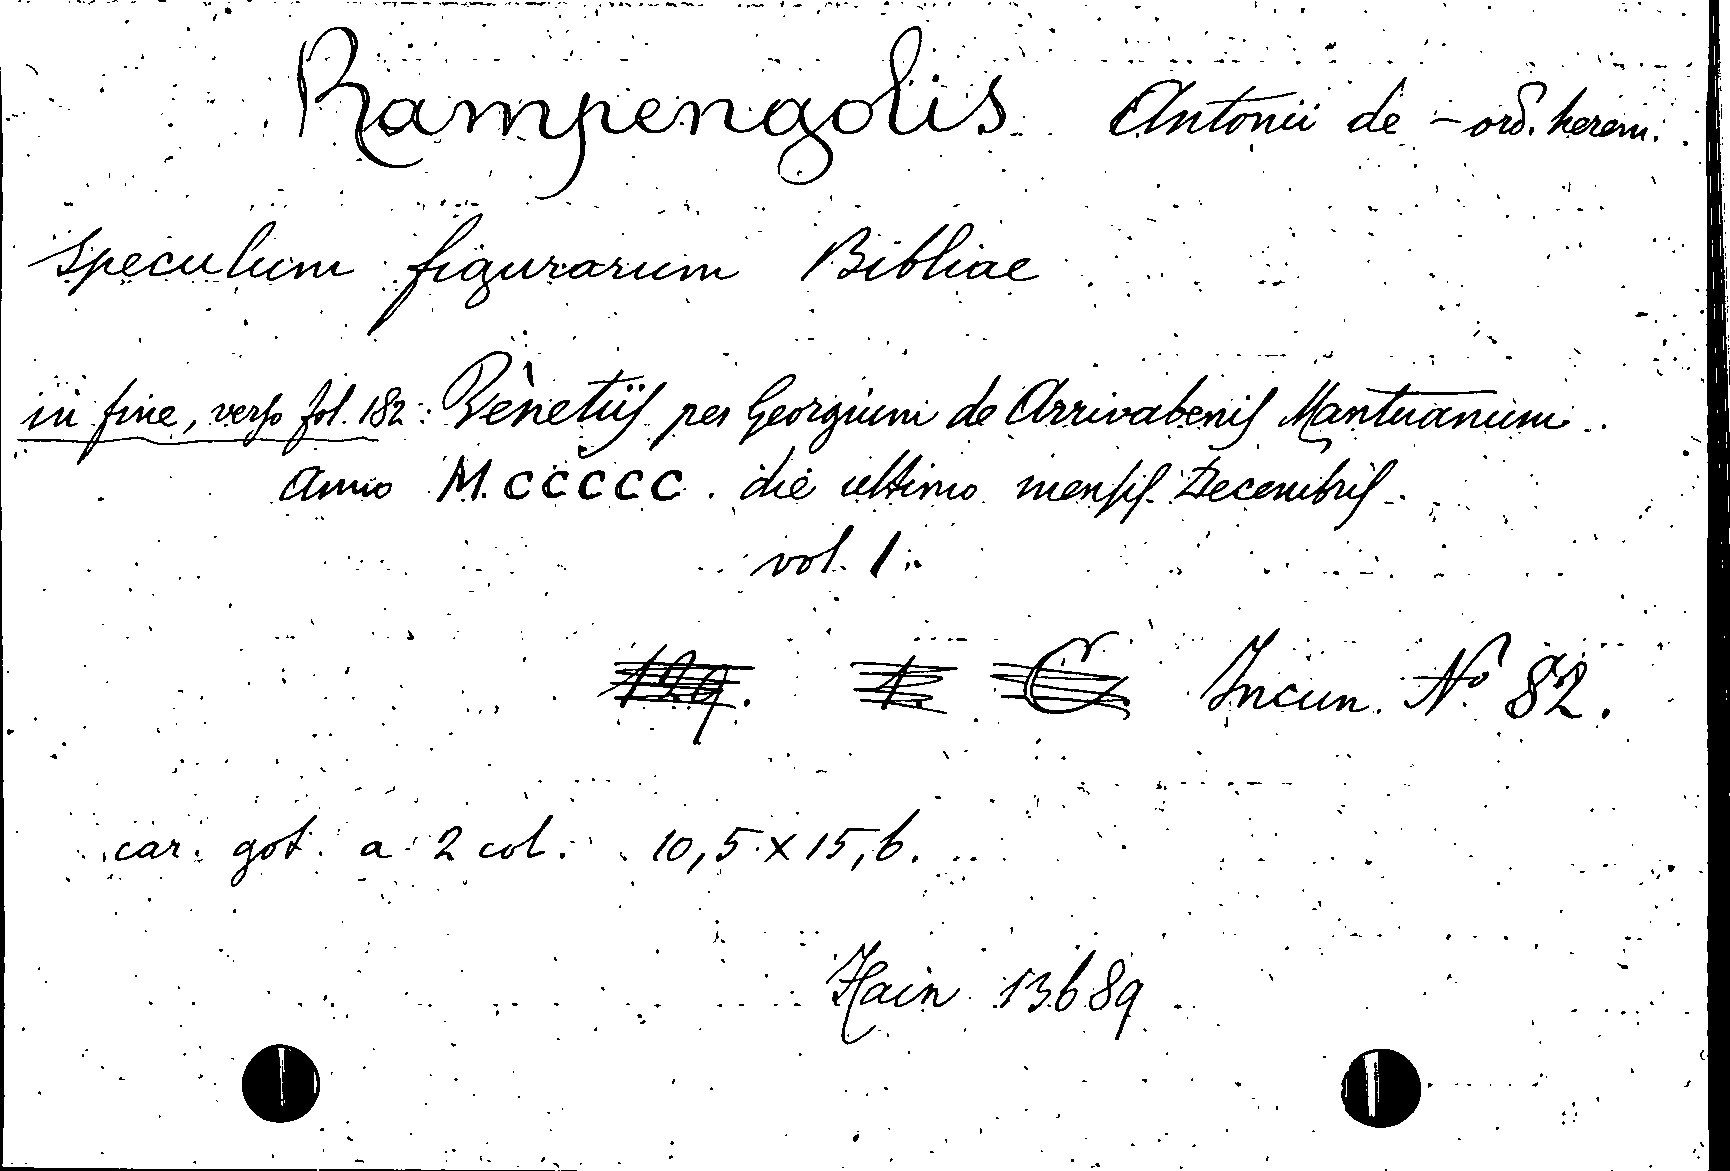 Rampengolis Antonii de - ord. herem.
Speculum figurarum Bibliae
in fine, verso fol. 182: Venetiis per Georgium de Arrivabenis Mantuanum
Anno M.CCCCC. die ultimo mensis Decembris.
vol. 1.
129. 1. C. Incun. No 82.
car. got. a 2 col. 10,5 x 15,6.
Hain 13689